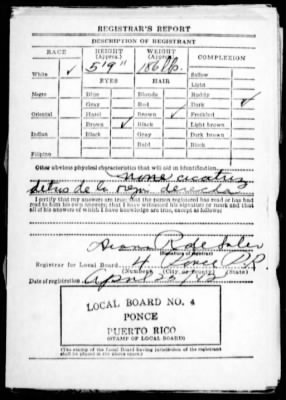 REGISTRAR'S REPORT
DESCRIPTION OF REGISTRANT
RACE HEIGHT (Approx.) WEIGHT (Approx.) COMPLEXION
White ✓ 5'9" 186 lb. Sallow
EYES HAIR Light
Negro Blue Blonde Ruddy
Gray Red Dark ✓
Oriental Hazel Brown ✓ Freckled
Brown ✓ Black Light brown
Indian Black Gray Dark brown
Bald Black
Filipino
Other obvious physical characteristics that will aid in identification none cicatriz
detras de la oreja derecha
I certify that my answers are true; that the person registered has read or has had
read to him his own answers; that I have witnessed his signature or mark and that
all of his answers of which I have knowledge are true, except as follows:
R. de
(Signature of registrar)
Registrar for Local Board 4 Ponce P.R.
(Number) (City or county) (State)
Date of registration April 25, 42
LOCAL BOARD NO. 4
PONCE
PUERTO RICO
(STAMP OF LOCAL BOARD)
(The stamp of the Local Board having jurisdiction of the registrant
shall be placed in the above space.)